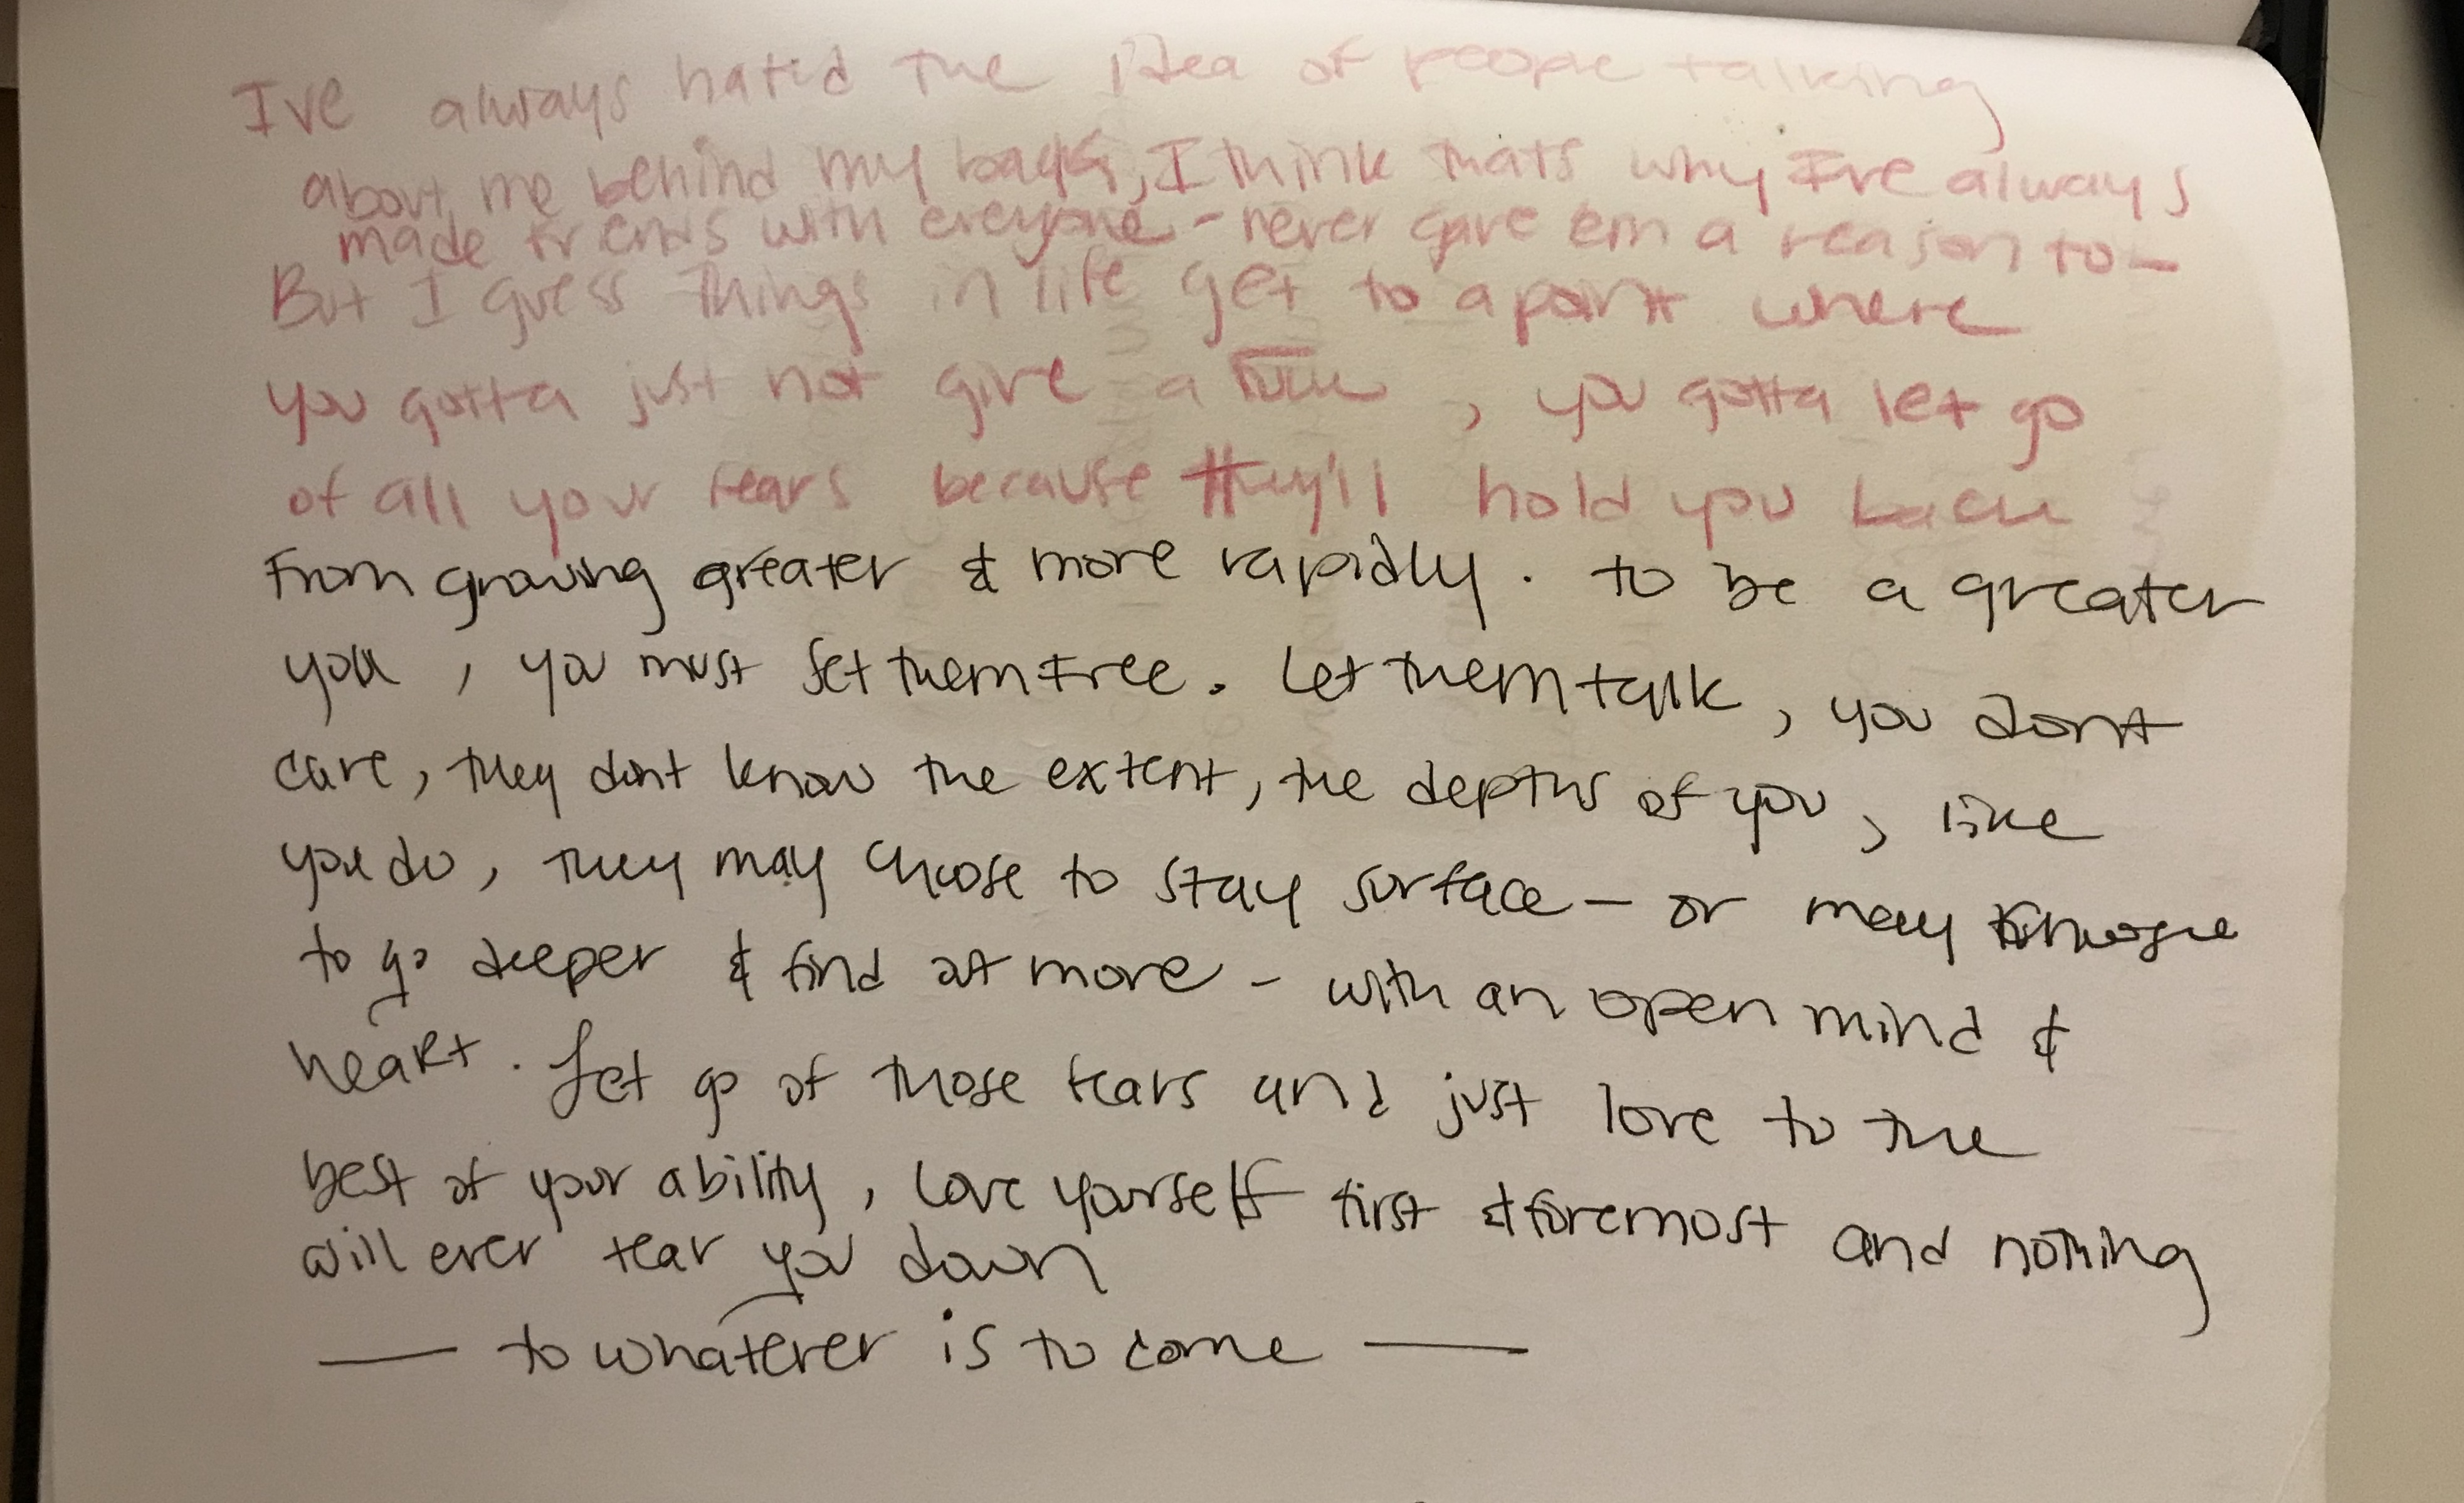 Ive always hated the idea of people talking
about me behind my back, I think thats why Ive always
made friends with everyone - never gave em a reason to -
But I guess things in life get to a point where
you gotta just not give a fuck, you gotta let go
of all your fears because they'll hold you back
From growing greater & more rapidly. to be a greater
you, you must set them free. Let them talk, you dont
care, they dont know the extent, the depths of you, like
you do, they may choose to stay surface - or may
to go deeper & find out more - with an open mind &
heart. Let go of those fears and just love to the
best of your ability, love yourself first & foremost and nothing
will ever tear you down
— to whatever is to come —